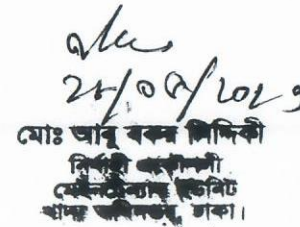 ২৮/০৫/২০২৩
মোঃ আবু বকর সিদ্দিকী
নির্বাহী প্রকৌশলী
মেইনটেন্যান্স ইউনিট
খাদ্য অধিদপ্তর, ঢাকা।